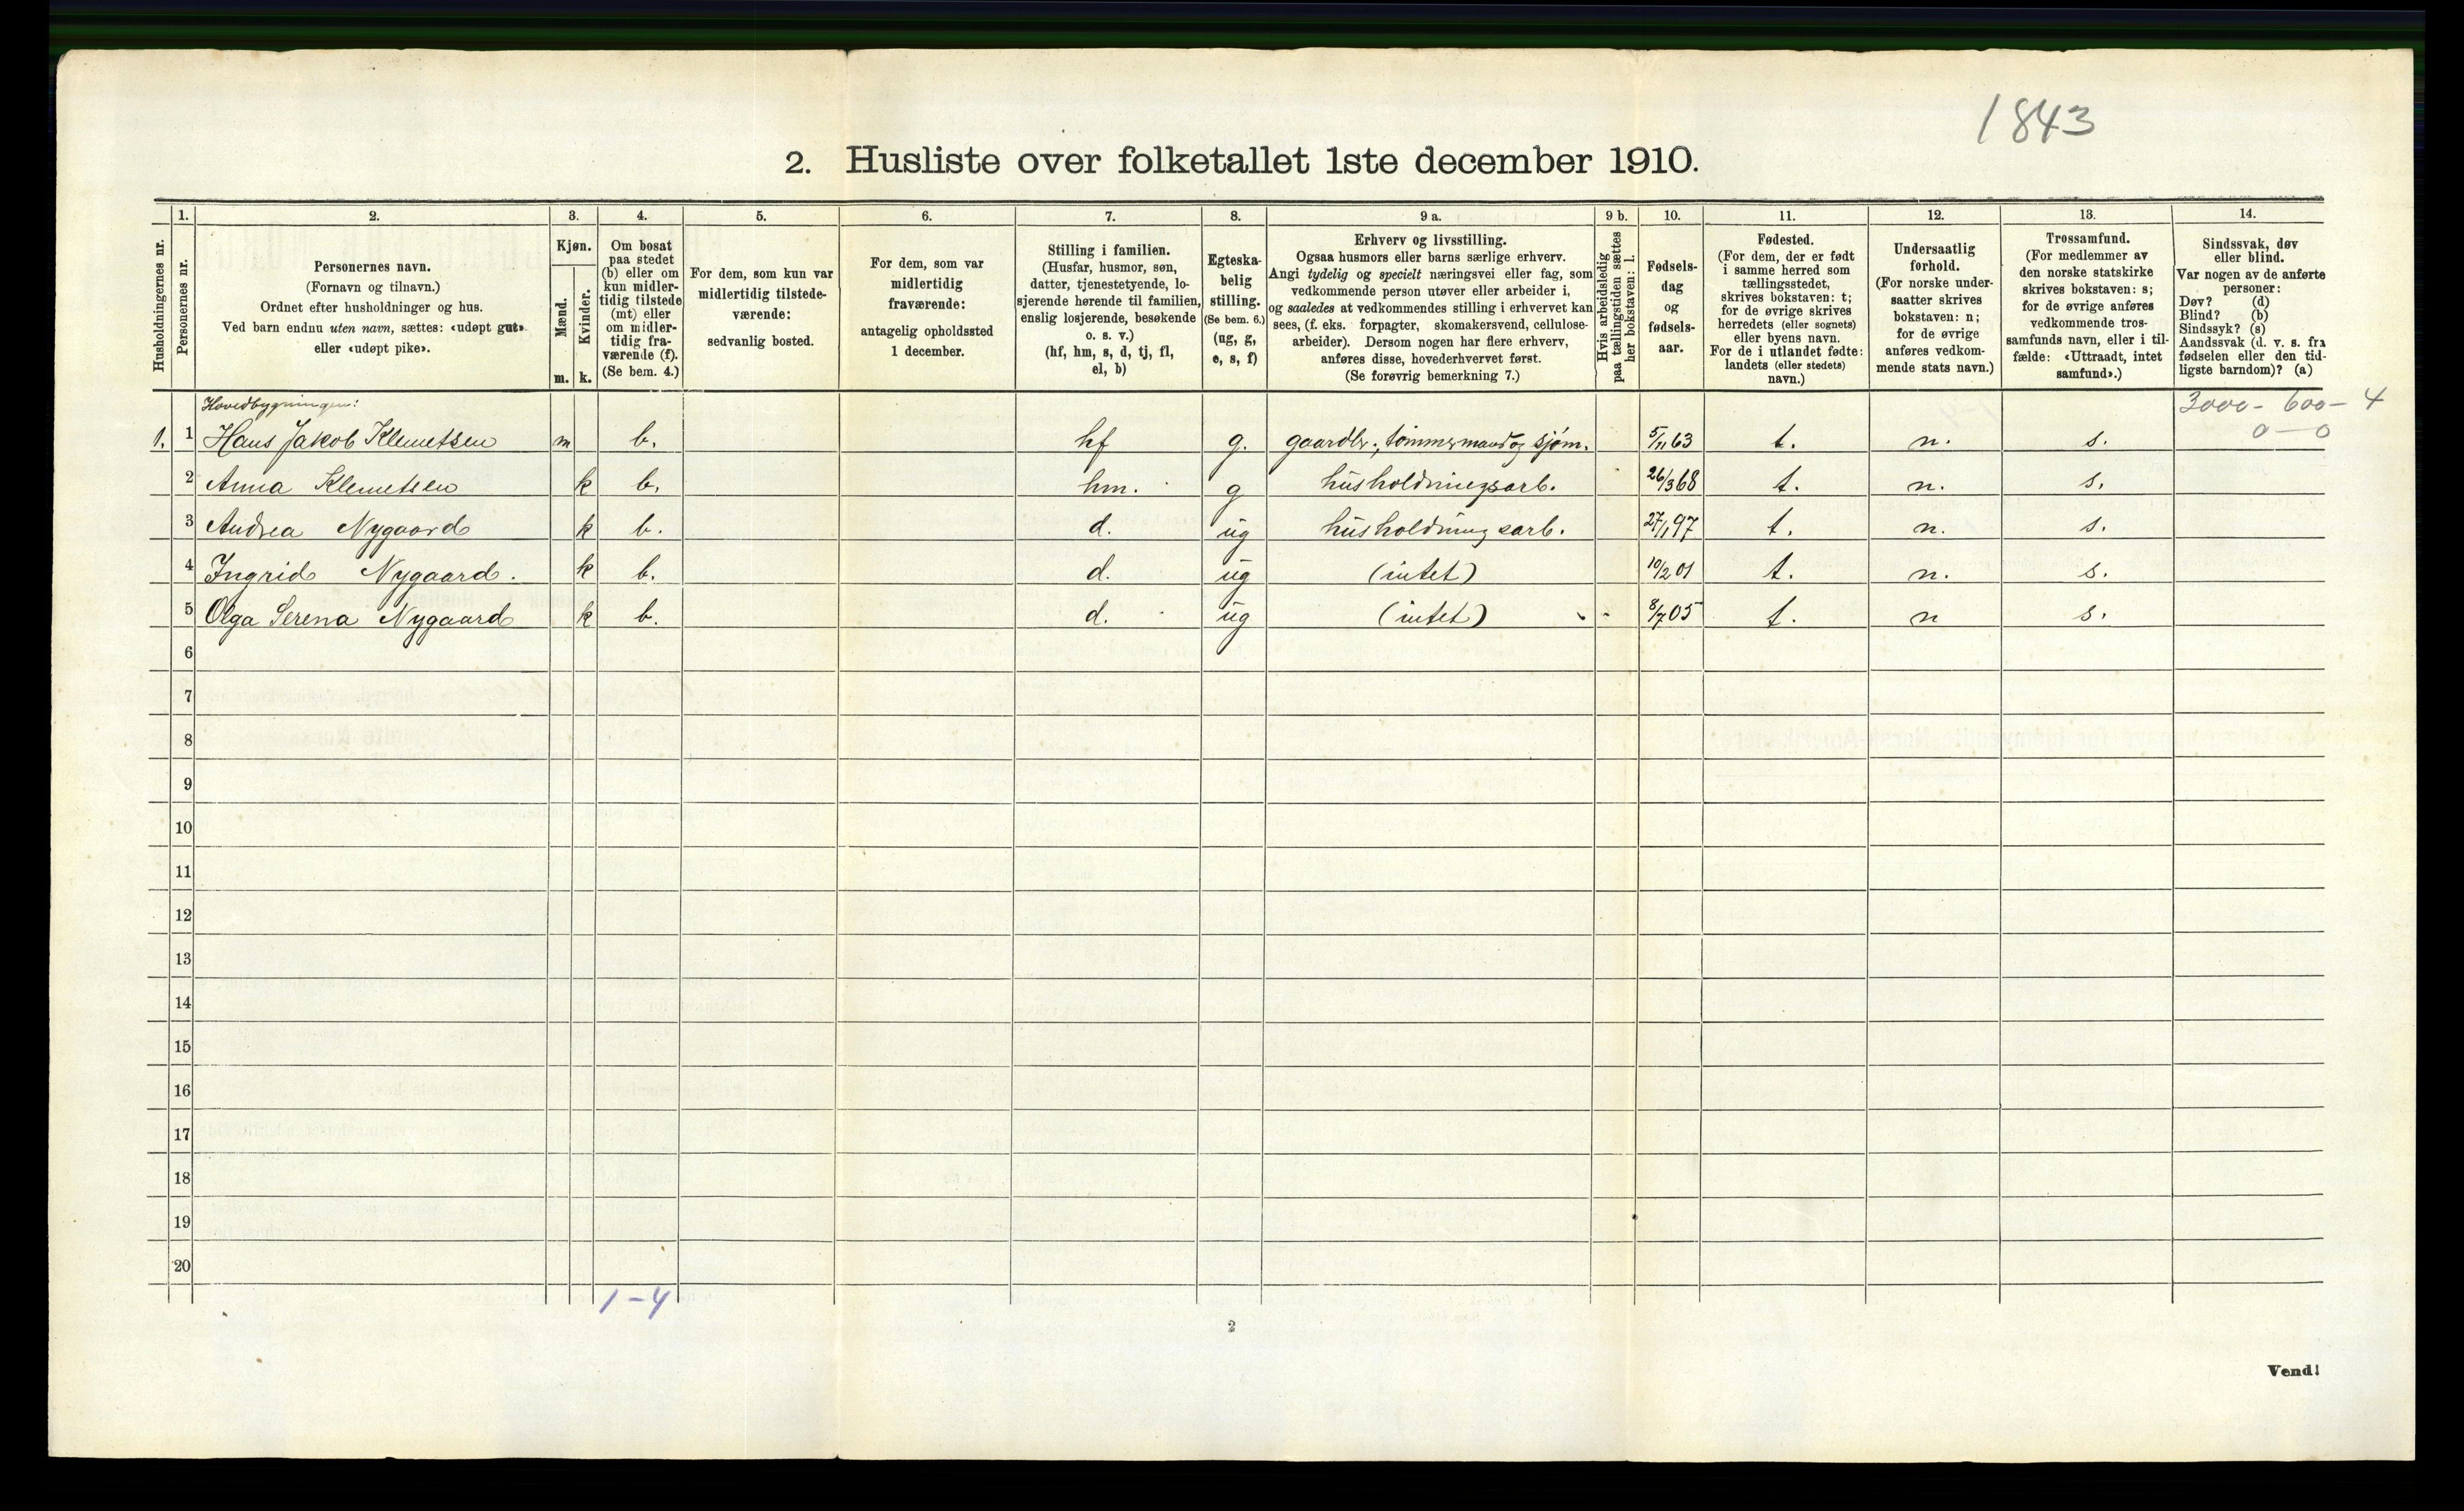 1843
2. Husliste over folketallet 1ste december 1910.
Husholdningernes nr.
1.
Personernes nr.
2.
Personernes navn.
(Fornavn og tilnavn.)
Ordnet efter husholdninger og hus.
Ved barn endnu uten navn, sættes: «udøpt gut»
eller «udøpt pike».
3.
Kjøn.
Mænd.
Kvinder.
m. k.
4.
Om bosat
paa stedet
(b) eller om
kun midler-
tidig tilstede
(mt) eller
om midler-
tidig fra-
værende (f).
(Se bem. 4.)
5.
For dem, som kun var
midlertidig tilstede-
værende:
sedvanlig bosted.
6.
For dem, som var
midlertidig
fraværende:
antagelig opholdssted
1 december.
7.
Stilling i familien.
(Husfar, husmor, søn,
datter, tjenestetyende, lo-
sjerende hørende til familien,
enslig losjerende, besøkende
o. s. v.)
(hf, hm, s, d, tj, fl,
el, b)
8.
Egteska-
belig
stilling.
(Se bem. 6.)
(ug, g,
e, s, f)
9 a.
Erhverv og livsstilling.
Ogsaa husmors eller barns særlige erhverv.
Angi tydelig og specielt næringsvei eller fag, som
vedkommende person utøver eller arbeider i,
og saaledes at vedkommendes stilling i erhvervet kan
sees, (f. eks. forpagter, skomakersvend, cellulose-
arbeider). Dersom nogen har flere erhverv,
anføres disse, hovederhvervet først.
(Se forøvrig bemerkning 7.)
9 b.
Hvis arbeidsledig
paa tællingstiden sættes
her bokstaven: l.
10.
Fødsels-
dag
og
fødsels-
aar.
11.
Fødested.
(For dem, der er født
i samme herred som
tællingsstedet,
skrives bokstaven: t;
for de øvrige skrives
herredets (eller sognets)
eller byens navn.
For de i utlandet fødte:
landets (eller stedets)
navn.)
12.
Undersaatlig
forhold.
(For norske under-
saatter skrives
bokstaven: n;
for de øvrige
anføres vedkom-
mende stats navn.)
13.
Trossamfund.
(For medlemmer av
den norske statskirke
skrives bokstaven: s;
for de øvrige anføres
vedkommende tros-
samfunds navn, eller i til-
fælde: «Uttraadt, intet
samfund».)
14.
Sindssvak, døv
eller blind.
Var nogen av de anførte
personer:
Døv? (d)
Blind? (b)
Sindssyk? (s)
Aandssvak (d. v. s. fra
fødselen eller den tid-
ligste barndom)? (a)
Hovedbygningen:
3000 - 600 - 4
0 - 0
1. 1 Hans Jakob Klemetsen m b. hf g. gaardbr., tømmermand og sjøm. 5/11 63 t. n. s.
2 Anna Klemetsen k b. hm. g husholdningsarb. 26/3 68 t. n. s.
3 Andrea Nygaard k b. d. ug husholdningsarb. 27/1 97 t. n. s.
4 Ingrid Nygaard. k b. d. ug (intet) 10/2 01 t. n. s.
5 Olga Serena Nygaard k b. d. ug (intet) 8/7 05 t. n s.
6
7
8
9
10
11
12
13
14
15
16
17
18
19
20
1-4
2
Vend!